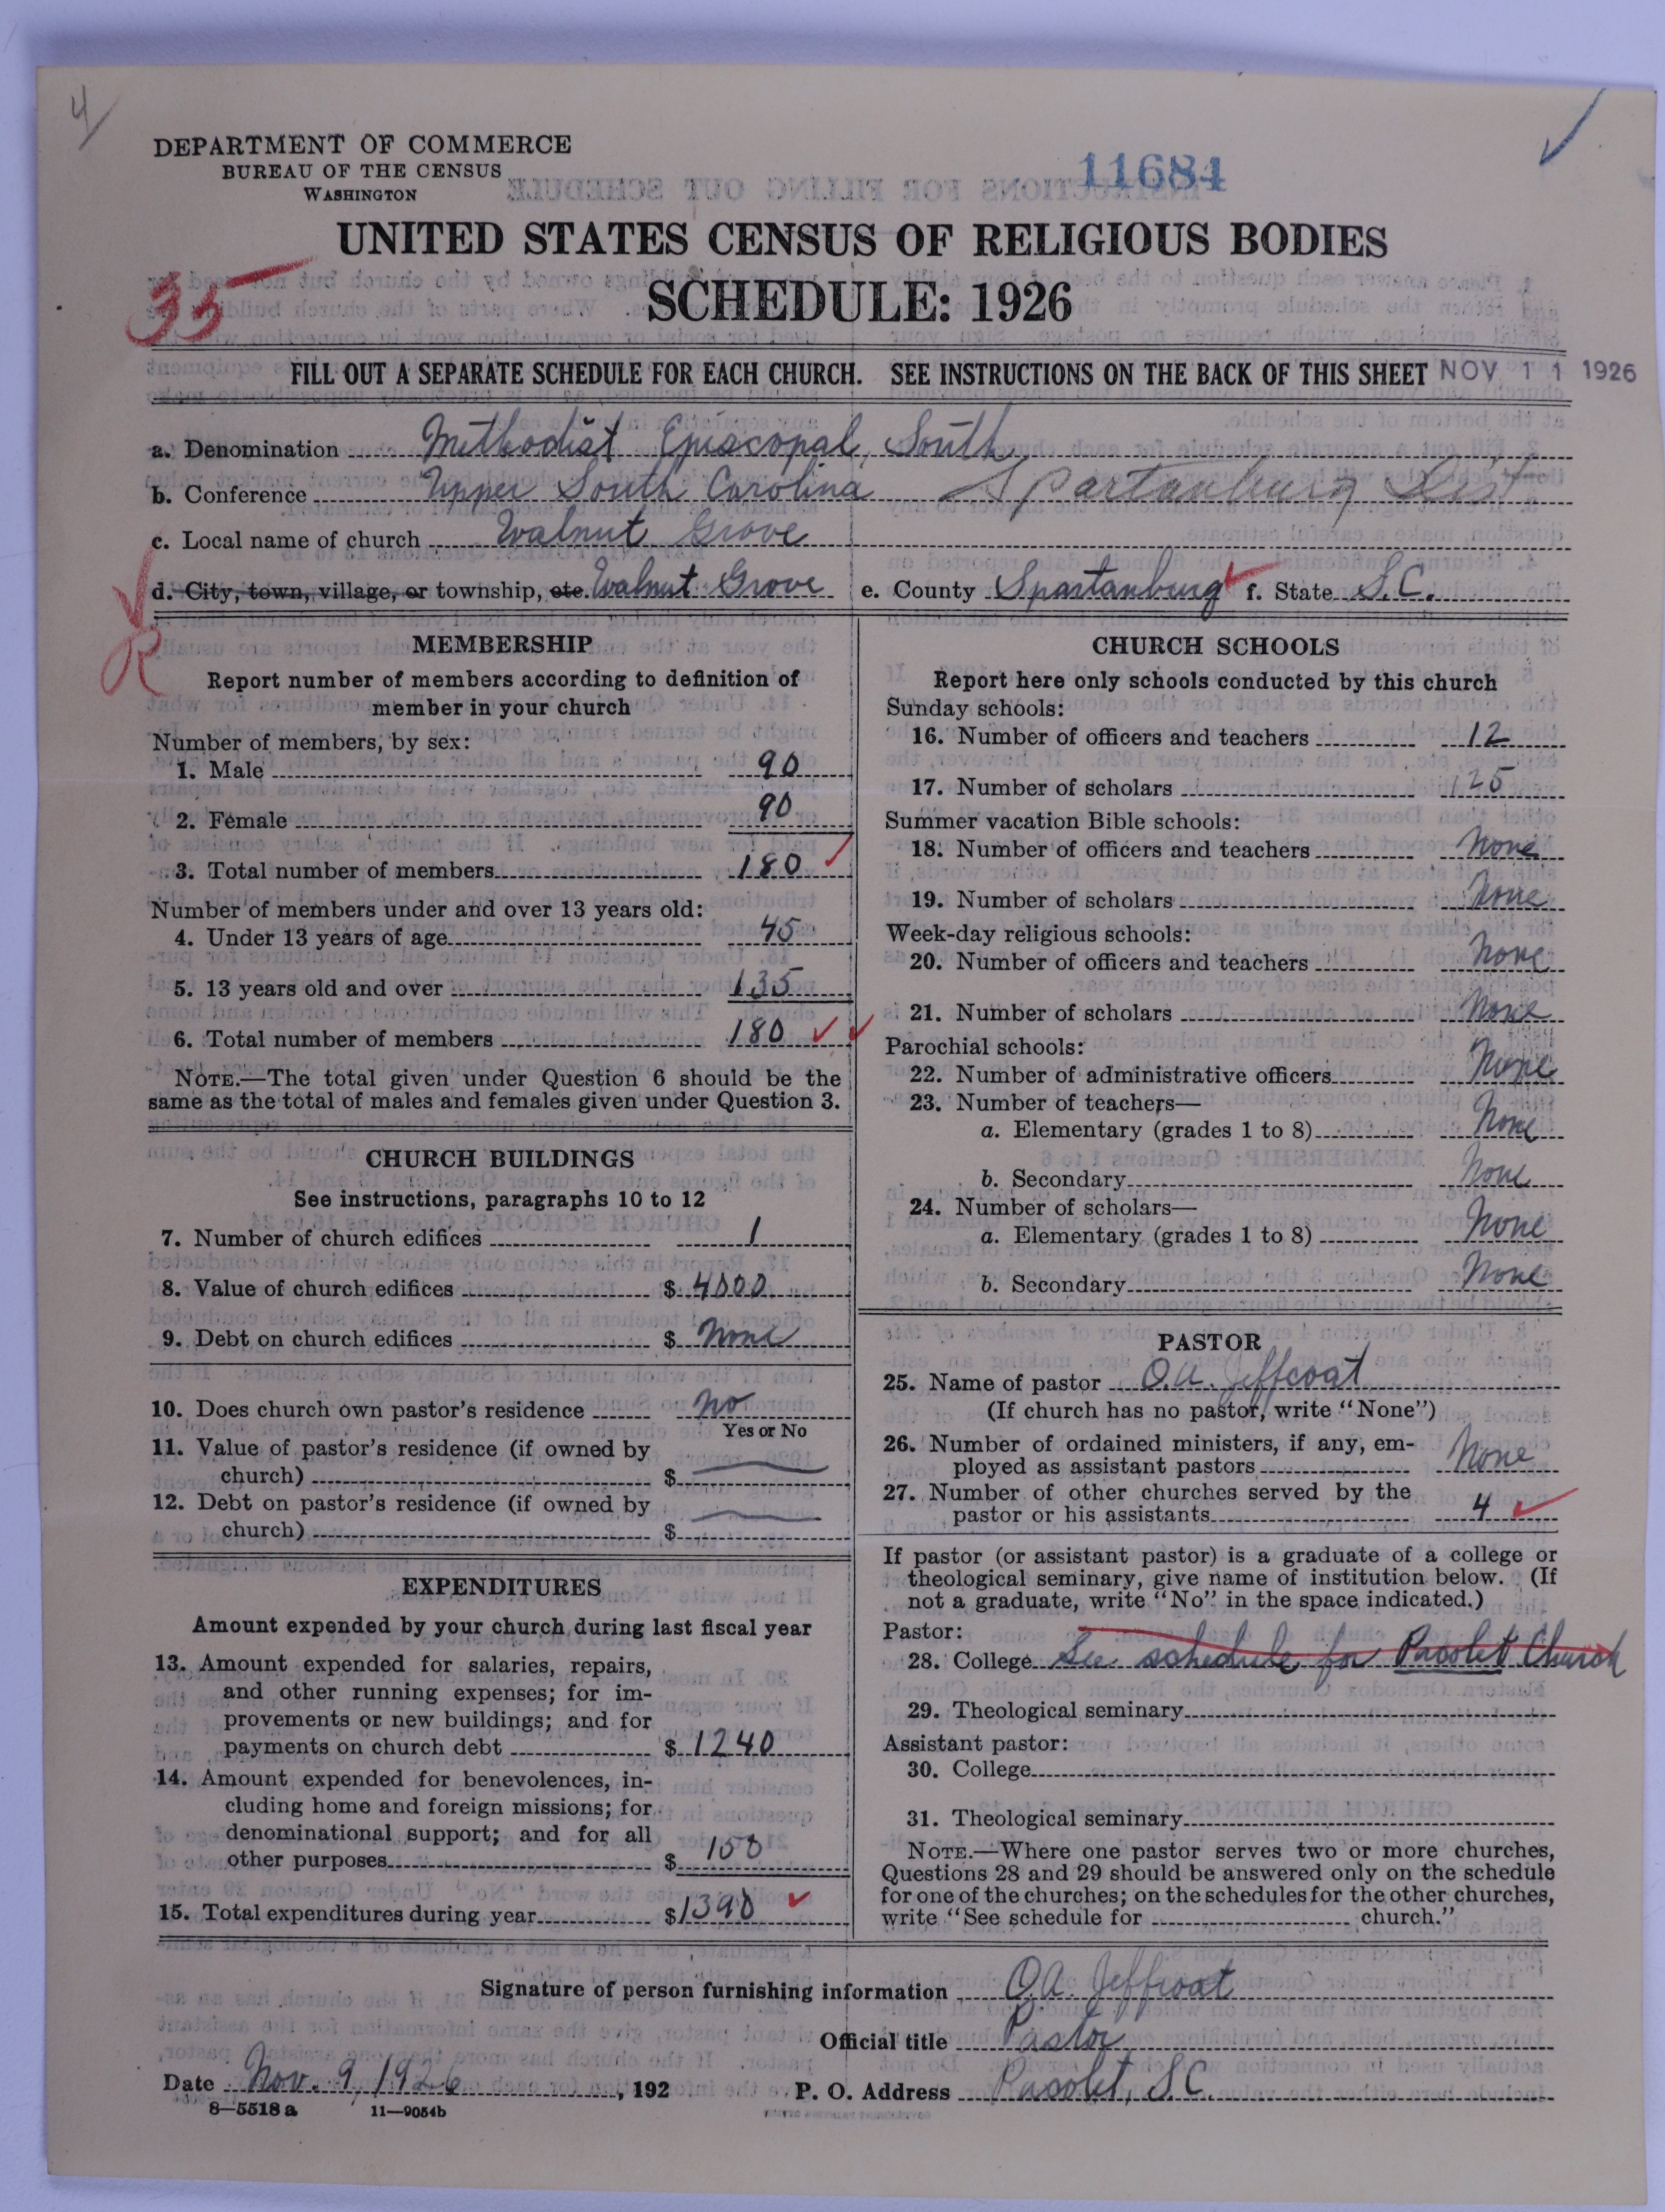 4
DEPARTMENT OF COMMERCE
BUREAU OF THE CENSUS
WASHINGTON
11684
UNITED STATES CENSUS OF RELIGIOUS BODIES
SCHEDULE: 1926
35
FILL OUT A SEPARATE SCHEDULE FOR EACH CHURCH. SEE INSTRUCTIONS ON THE BACK OF THIS SHEET NOV 11 1926
a. Denomination Methodist Episcopal, South
b. Conference Upper South Carolina Spartanburg Dist
c. Local name of church Walnut Grove
d. City, town, village, or township, etc. Walnut Grove e. County Spartanburg f. State S.C.
R
MEMBERSHIP
Report number of members according to definition of
member in your church
Number of members, by sex:
1. Male 90
2. Female 90
3. Total number of members 180
Number of members under and over 13 years old:
4. Under 13 years of age 45
5. 13 years old and over 135
6. Total number of members 180
NOTE.—The total given under Question 6 should be the
same as the total of males and females given under Question 3.
CHURCH BUILDINGS
See instructions, paragraphs 10 to 12
7. Number of church edifices 1
8. Value of church edifices $ 4000
9. Debt on church edifices $ None
10. Does church own pastor's residence No
Yes or No
11. Value of pastor's residence (if owned by
church) $
12. Debt on pastor's residence (if owned by
church) $
EXPENDITURES
Amount expended by your church during last fiscal year
13. Amount expended for salaries, repairs,
and other running expenses; for im-
provements or new buildings; and for
payments on church debt $ 1240
14. Amount expended for benevolences, in-
cluding home and foreign missions; for
denominational support; and for all
other purposes $ 150
15. Total expenditures during year $ 1390
CHURCH SCHOOLS
Report here only schools conducted by this church
Sunday schools:
16. Number of officers and teachers 12
17. Number of scholars 125
Summer vacation Bible schools:
18. Number of officers and teachers None
19. Number of scholars None
Week-day religious schools:
20. Number of officers and teachers None
21. Number of scholars None
Parochial schools:
22. Number of administrative officers None
23. Number of teachers—
a. Elementary (grades 1 to 8) None
b. Secondary None
24. Number of scholars—
a. Elementary (grades 1 to 8) None
b. Secondary None
PASTOR
25. Name of pastor O.A. Jeffcoat
(If church has no pastor, write "None")
26. Number of ordained ministers, if any, em-
ployed as assistant pastors None
27. Number of other churches served by the
pastor or his assistants 4
If pastor (or assistant pastor) is a graduate of a college or
theological seminary, give name of institution below. (If
not a graduate, write "No" in the space indicated.)
Pastor:
28. College See schedule for Pacolet Church
29. Theological seminary
Assistant pastor:
30. College
31. Theological seminary
NOTE.—Where one pastor serves two or more churches,
Questions 28 and 29 should be answered only on the schedule
for one of the churches; on the schedules for the other churches,
write "See schedule for church."
Signature of person furnishing information O.A. Jeffcoat
Official title Pastor
Date Nov. 9, 1926, 192 P. O. Address Pacolet, S.C.
8—5518 a 11—9054b